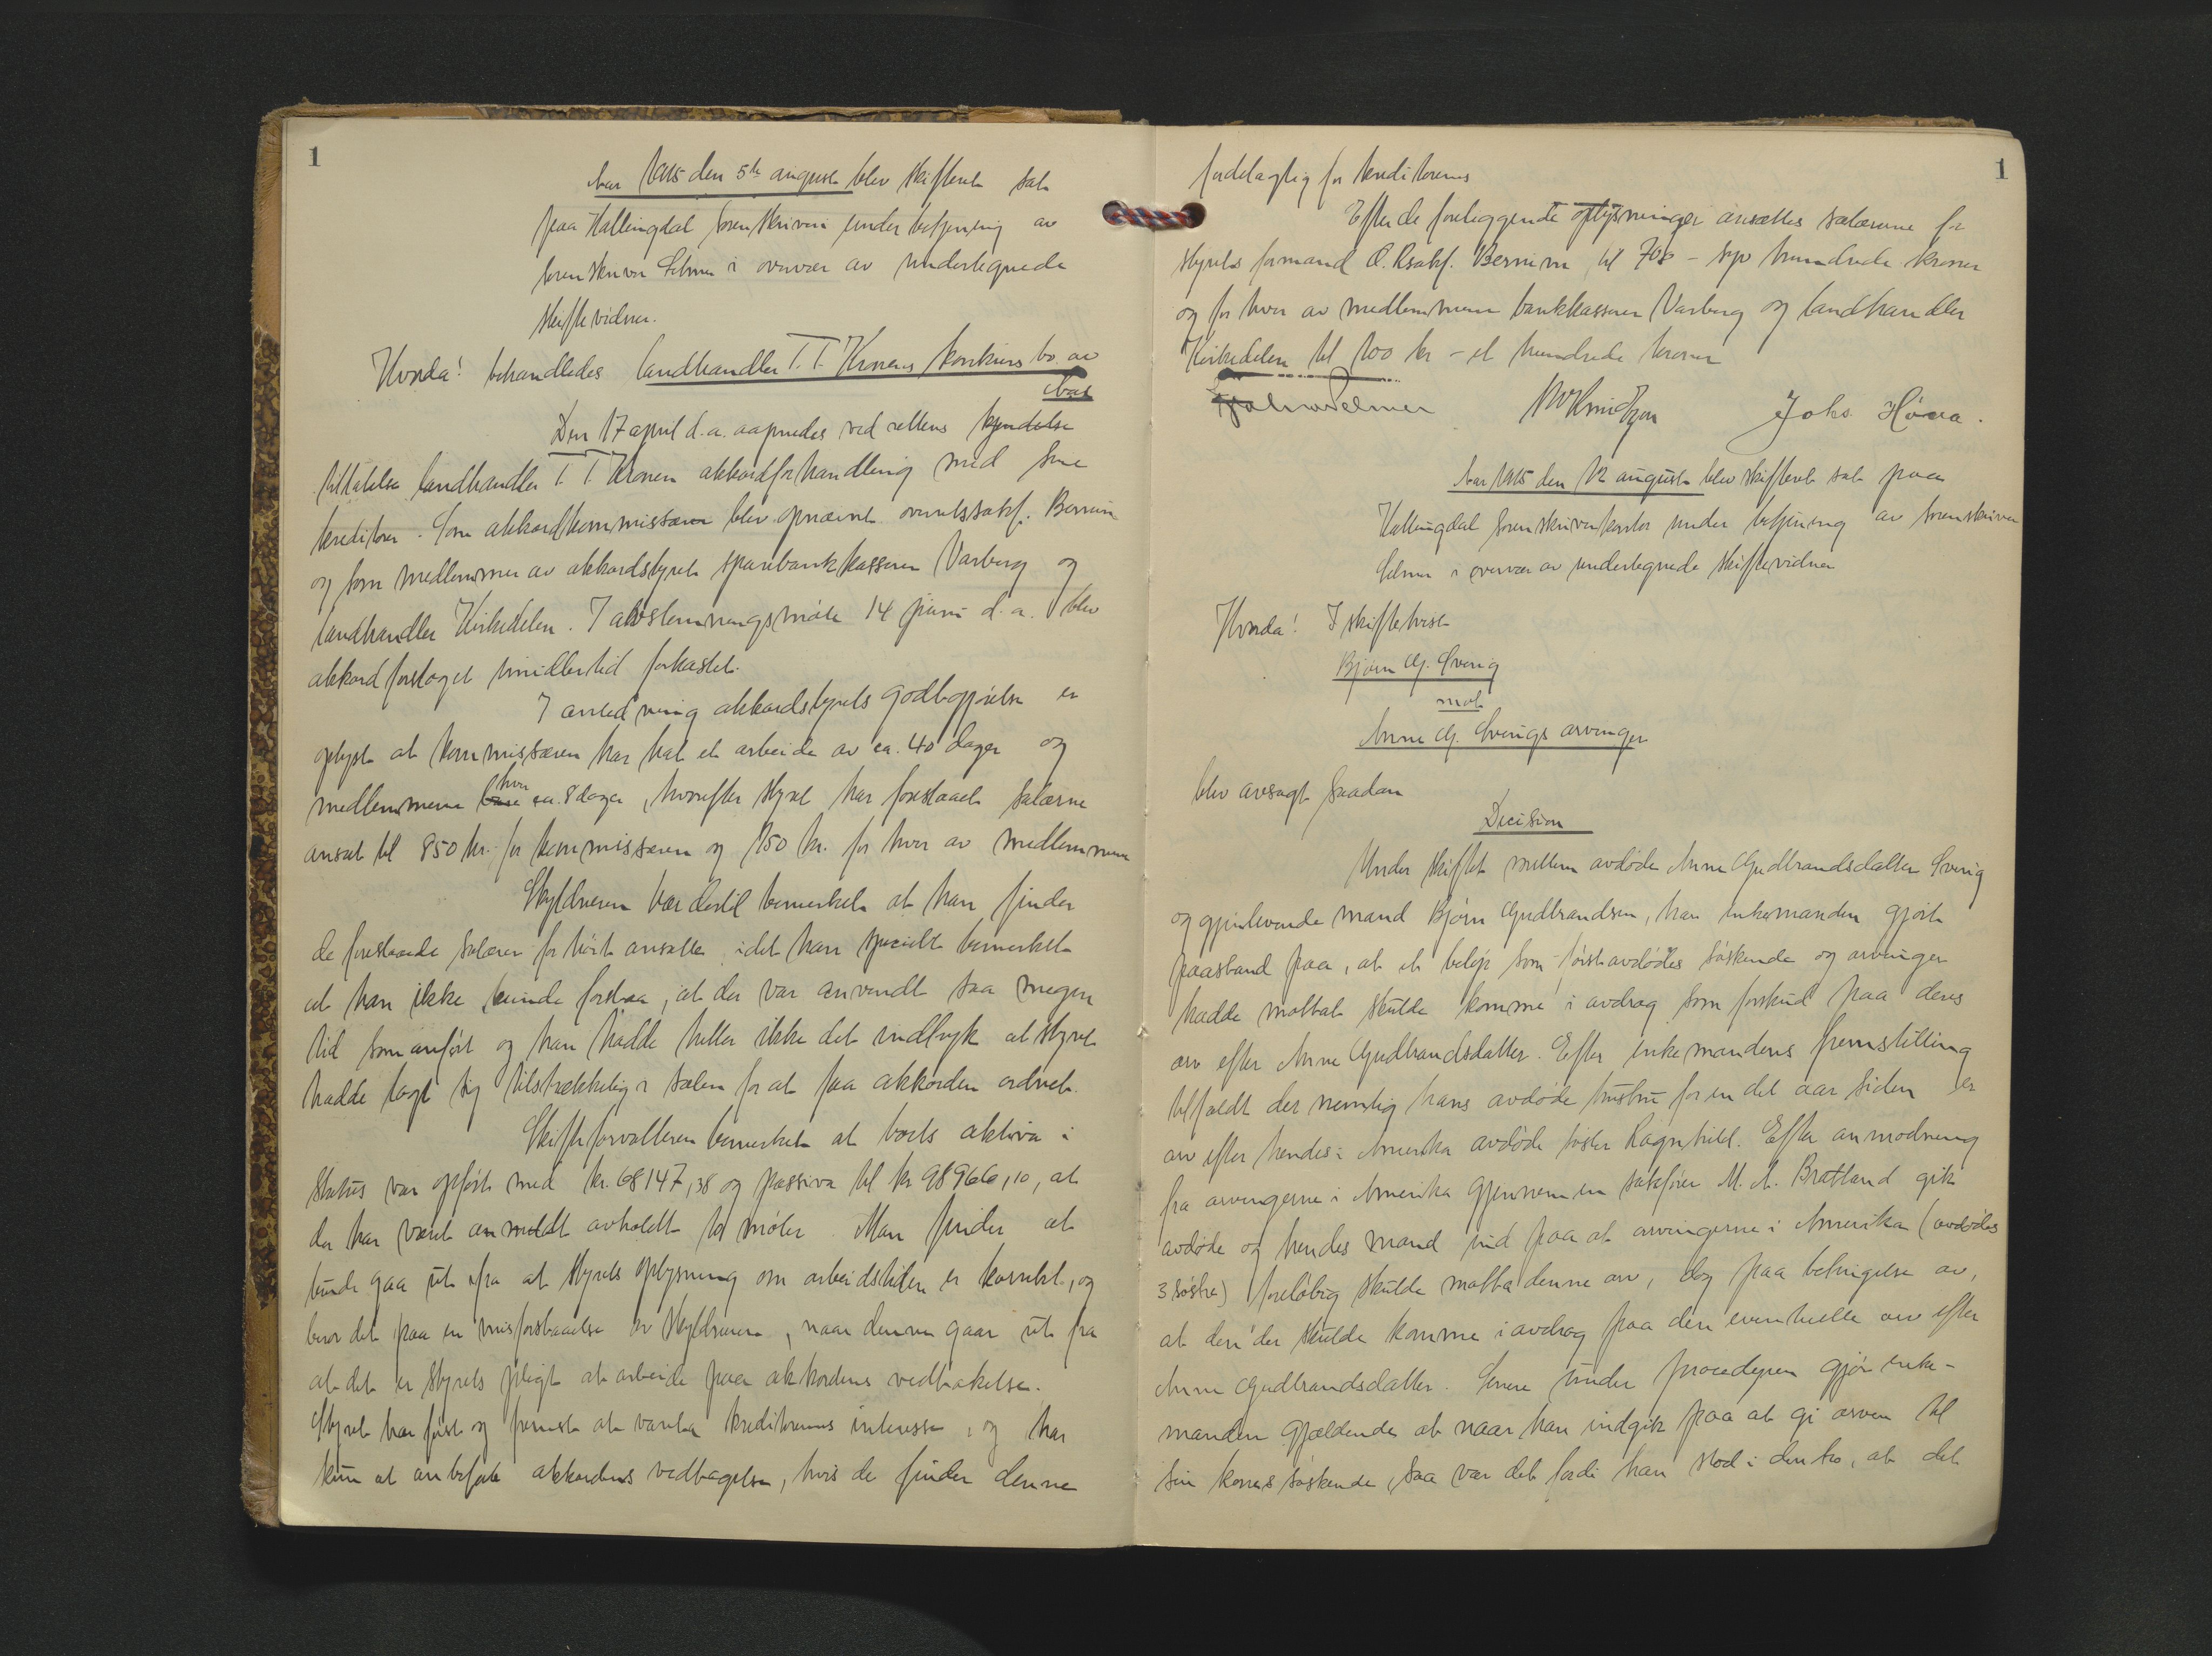 1
Aar 1915 den 5te august blev skifteret sat
paa Hallingdal sorenskriveri under betjening av
sorenskriver Selmer i overvær av undertegnede
skiftevidner.
Hvorda! behandledes landhandler T. T. Kronens konkursbo av
Den 17 april d.a. aapnedes ved rettens kjendelse
tiltatelse landhandler T. T. Kronen akkordforhandling med sine
kreditorer. Som akkordkommissær blev opnævnt overretssakf. Bernim
og som medlemmer av akkordstyret sparebankkasserer Varberg og
landhandler Kirkedelen. I avstemningsmøte 14 juni d.a. blev
akkordforslaget imidlertid forkastet.
I anledning akkordstyrets godtgjørelse er
oplyst at kommissæren har hat et arbeide av ca. 40 dager og
medlemmerne hver ca. 8 dager, hvorefter styret har foreslaaet salærene
ansat til 850 kr. for kommissæren og 150 kr. for hver av medlemmerne
Skyldneren har dertil bemerket at han finder
de foreslaaede salærer for høit ansatte idet han specielt bemerket
at han ikke kunde forstaa, at der var anvendt saa megen
tid som anført og han hadde heller ikke det indtryk at styret
hadde lagt sig tilstrækkelig i sælen for at faa akkorden ordnet.
Skifteforvalteren bemerket at boets aktiva i
status var opført med kr. 68147,38 og passiva til kr 98966,10, at
der har været anmeldt avholdt to møter. Man finder at
kunde gaa ut ifra at styrets oplysning om arbeidstiden er korrekt, og
beror det paa en misforstaaelse av skyldneren, naar denne gaar ut fra
at det er styrets pligt at arbeide paa akkordens vedtakelse.
Styret har først og fremst at vareta kreditorernes interesse, og har
kun at anbefale akkordens vedtagelse, hvis de finder denne
1
fordelagtig for kreditorerne
Efter de foreliggende oplysninger ansættes salærerne for
styrets formand O.Rsakf. Bernim til 700 - syv hundrede kroner
og for hver av medlemmerne bankkasserer Varberg og landhandler
Kirkedelen til 100 kr - et hundrede kroner
Selmer Johs Høva.
Aar 1915 den 12 august blev skifteret sat paa
Hallingdal sorenskriverkontor under betjening av sorenskriver
Selmer i overvær av undertegnede skiftevidner
Hvorda! I skiftetvist
Bjørn G. Sverig
mot
Anne G. Sverigs arvinger
blev avsagt saadan
Decision
Under skiftet mellem avdøde Anne Gudbrandsdatter Sverig
og gjenlevende mand Bjørn Gudbrandsen, har enkemanden gjort
paastand paa, at et beløp som førstavdødes søskende og arvinger
hadde mottat skulde komme i avdrag som forskud paa deres
arv efter Anne Gudbrandsdatter. Efter enkemandens fremstilling
tilfaldt der nemlig hans avdøde hustru for en del aar siden er
arv efter hendes i Amerika avdøde søster Ragnhild. Efter anmodning
fra arvingerne i Amerika gjennem en sakfører M. A. Bratland gik
avdøde og hendes mand ind paa at arvingerne i Amerika (avdødes
3 søstre) foreløbig skulde motta denne arv, dog paa betingelse av,
at den der skulde komme i avdrag paa den eventuelle arv efter
Anne Gudbrandsdatter. Senere under proceduren gjør enke-
manden gjældende at naar han indgik paa at gi arven til
sin kones søskende, saa var det fordi han stod i den tro, at det